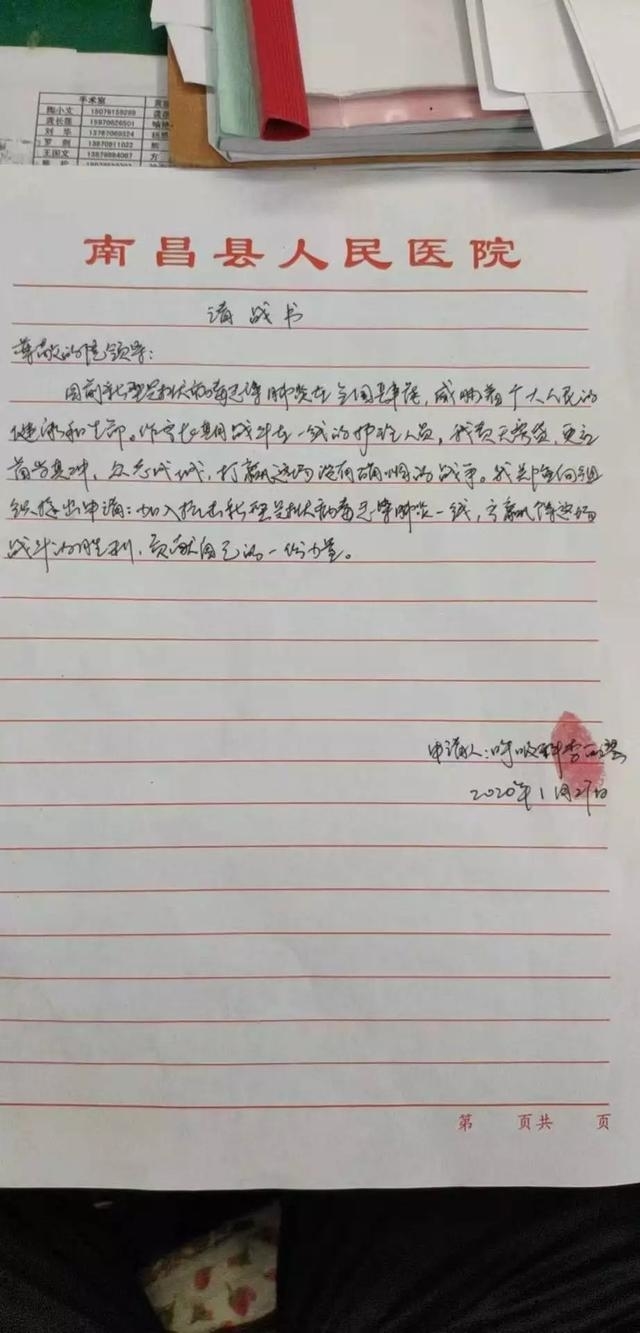 手术室
陶小文 15079159289
15970626501
刘华 13767069324
罗刚 13870911022
王国文 13879884087 方
南昌县人民医院
请战书
尊敬的院领导:
因前新型冠状病毒感染肺炎在全国肆虐,威胁着广大人民的
健康和生命。作为长期战斗在一线的护理人员,我责无旁贷,更应
首当其冲,众志成城,打赢这场没有硝烟的战争。我郑重向组
织提出申请:加入抗击新型冠状病毒感染肺炎一线,为赢得这场
战斗的胜利,贡献自己的一份力量。
申请人:呼吸科李
2020年1月27日
第 页共 页